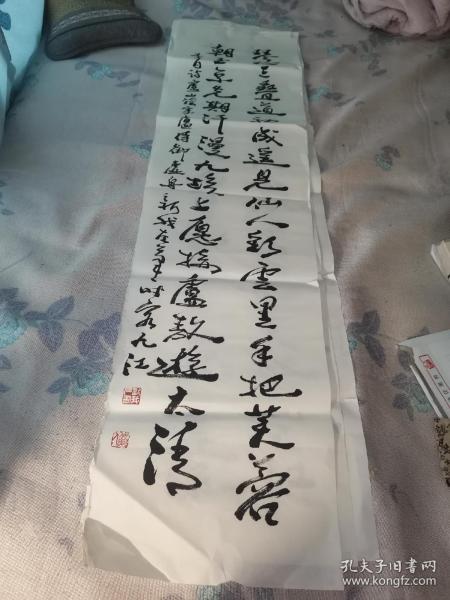 琴三叠道初成遥见仙人彩云里手把芙蓉
朝玉京先期汗漫九垓上愿接卢敖游太清
李白诗庐山谣寄卢侍御虚舟
时客九江
孔夫子旧书网
www.kongfz.com